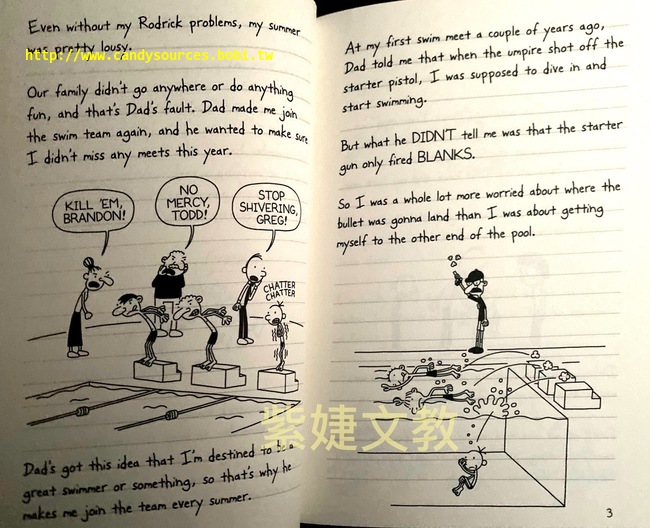 Even without my Rodrick problems, my summer
was pretty lousy.
http://www.candysources.bobi.tw
Our family didn't go anywhere or do anything
fun, and that's Dad's fault. Dad made me join
the swim team again, and he wanted to make sure
I didn't miss any meets this year.
KILL 'EM,
BRANDON!
NO
MERCY,
TODD!
STOP
SHIVERING,
GREG!
CHATTER
CHATTER
Dad's got this idea that I'm destined to be a
great swimmer or something, so that's why he
makes me join the team every summer.
At my first swim meet a couple of years ago,
Dad told me that when the umpire shot off the
starter pistol, I was supposed to dive in and
start swimming.
But what he DIDN'T tell me was that the starter
gun only fired BLANKS.
So I was a whole lot more worried about where the
bullet was gonna land than I was about getting
myself to the other end of the pool.
紫婕文教
3